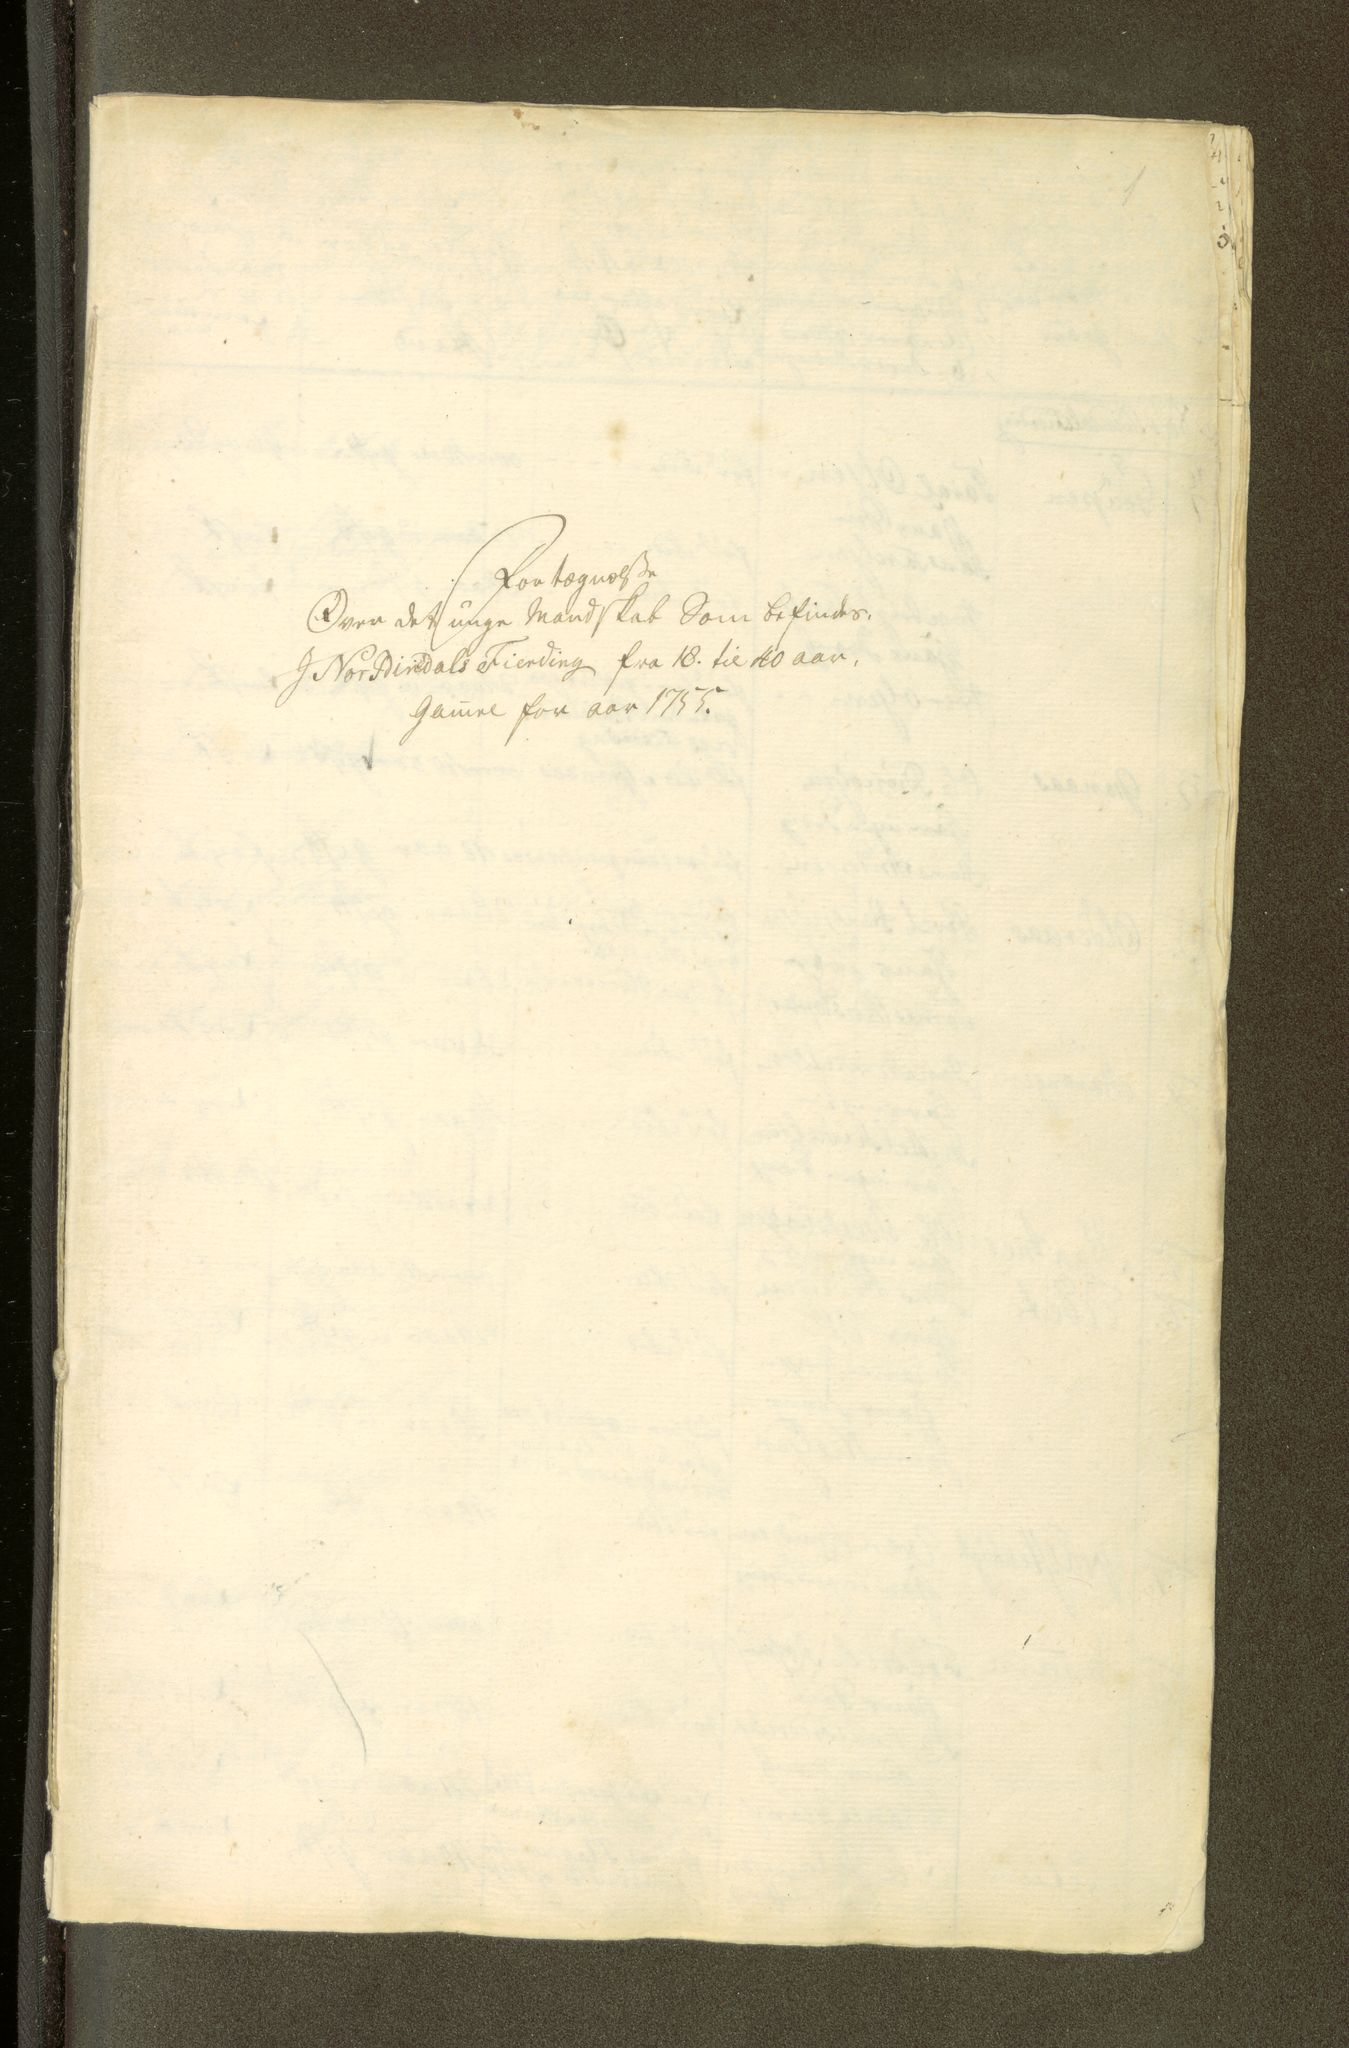 1
Fortegnelsße
Over det unge Mandskab Som befindes.
J Norddindals Fierding fra 18. til 40 aar,
Gam̄el for aar 1755.